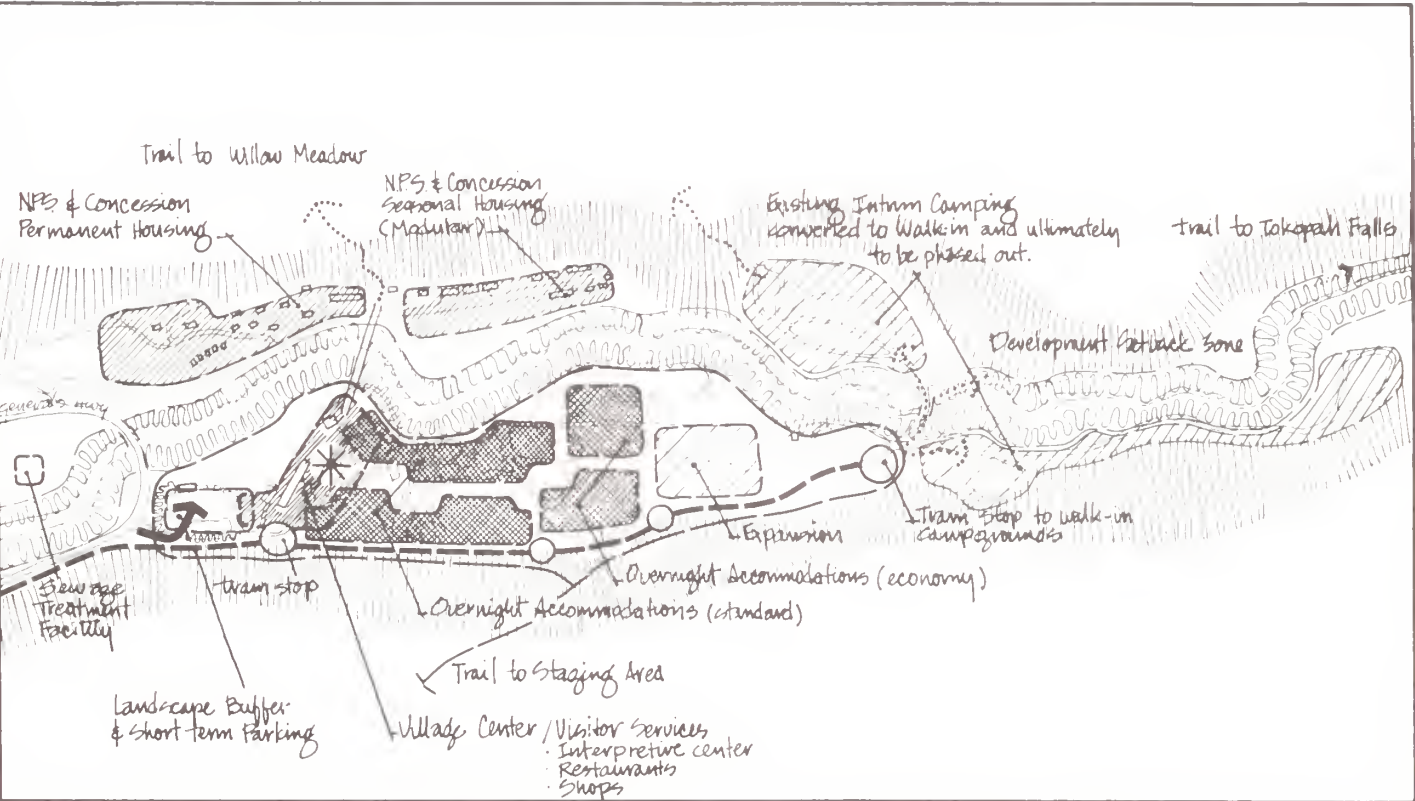 Trail to Willow Meadow
NPS & Concession
Permanent Housing
N.P.S. & Concession
Seasonal Housing
(Modular)
Existing Intrm Camping
converted to Walk-in and ultimately
to be phased out.
trail to Tokopah Falls
Development Setback Zone
Generals Hwy
Sewage
Treatment
Facility
tram stop
Expansion
Tram Stop to walk-in
campgrounds
Overnight Accommodations (economy)
Overnight Accommodations (standard)
Trail to Staging Area
Landscape Buffer
& Short term Parking
Village Center / Visitor Services
· Interpretive center
· Restaurants
· Shops